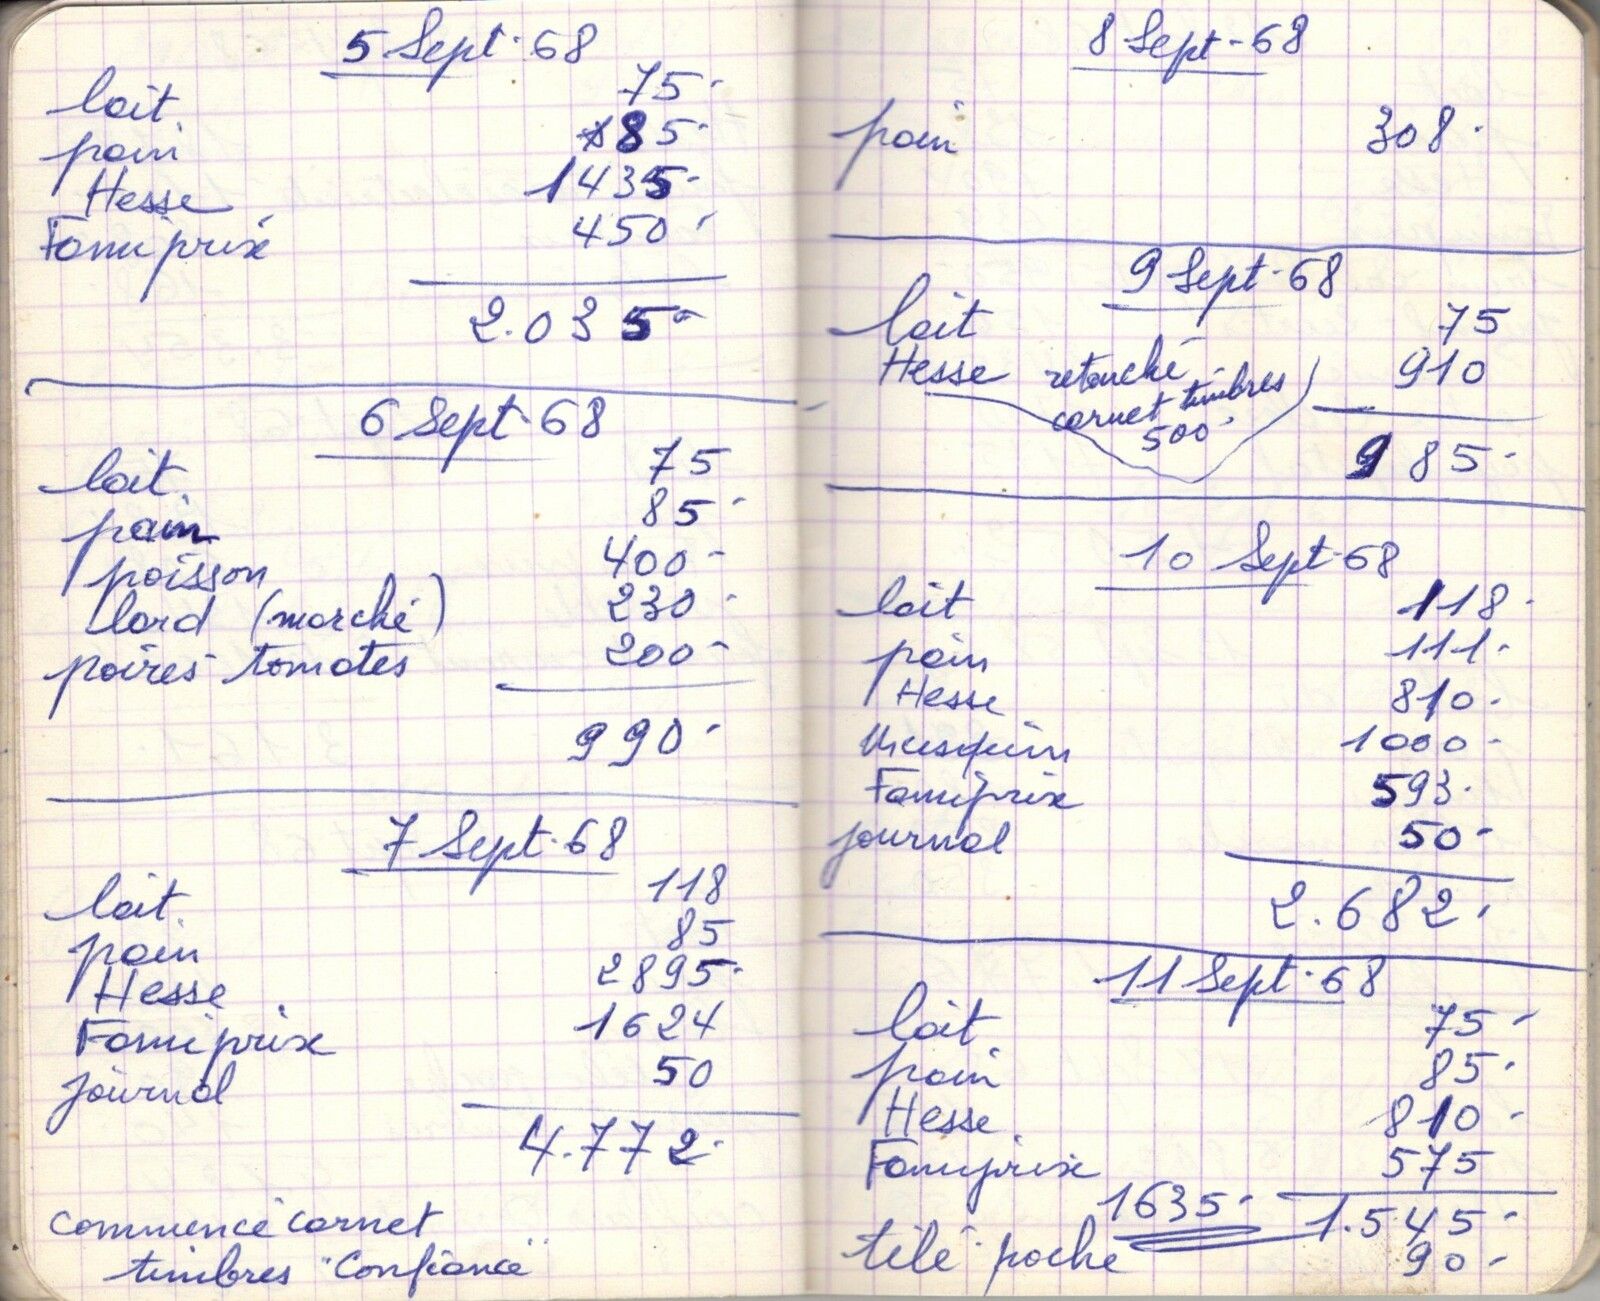 5 Sept. 68
lait 75.
pain 85.
Hesse 1435.
Famiprix 450.
2.035.
6 Sept. 68
lait 75
pain 85.
poisson 400.
lard (marché) 230.
poires tomates 200.
990.
7 Sept. 68
lait 118
pain 85
Hesse 2895.
Famiprix 1624
journal 50
4.772.
commencé carnet
timbres "Confiance"
8 Sept. 68
pain 308.
9 Sept. 68
lait 75
Hesse retouché 910
carnet timbres
500.
985.
10 Sept. 68
lait 118.
pain 111.
Hesse 810.
1000.
Famiprix 593.
journal 50.
2.682.
11 Sept. 68
lait 75.
pain 85.
Hesse 810.
Famiprix 575
1635. 1.545.
télé poche 90.